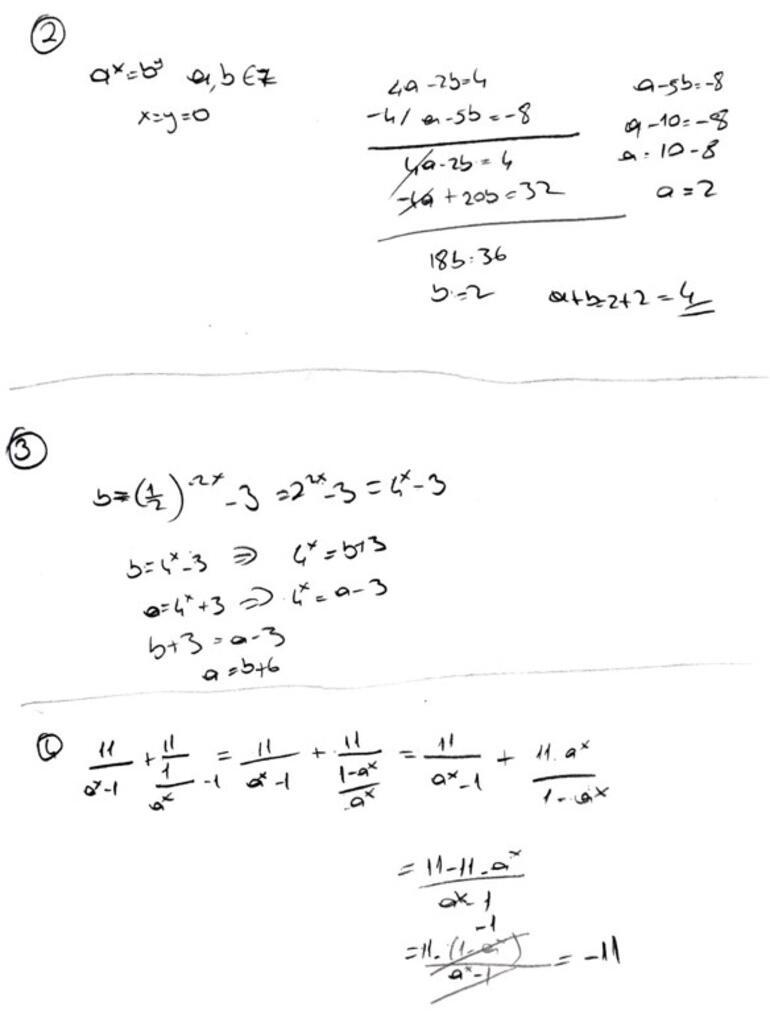 ②
a^x = b^y a, b ∈ Z
x = y = 0
4a - 2b = 4
-4/ a - 5b = -8
4a - 2b = 4
-4a + 20b = 32
18b = 36
b = 2
a - 5b = -8
a - 10 = -8
a = 10 - 8
a = 2
a + b = 2 + 2 = 4
③
b = (1/2)^{-2x} - 3 = 2^{2x} - 3 = 4^x - 3
b = 4^x - 3 ⇒ 4^x = b + 3
a = 4^x + 3 ⇒ 4^x = a - 3
b + 3 = a - 3
a = b + 6
11/(a^x - 1) + 11/(1/a^x - 1) = 11/(a^x - 1) + 11/((1 - a^x)/a^x) = 11/(a^x - 1) + 11.a^x/(1 - a^x)
= (11 - 11.a^x)/(a^x - 1)
-1
= 11.(1 - a^x)/(a^x - 1) = -11